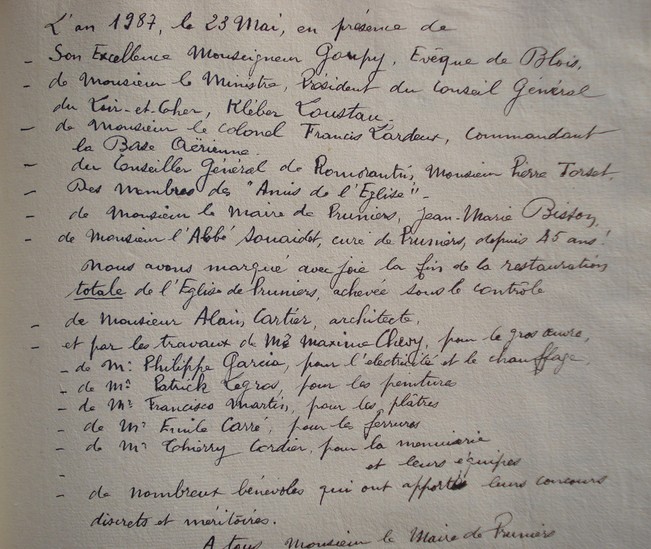 L'an 1987, le 23 Mai, en présence de
- Son Excellence Monseigneur Goupy, Evêque de Blois,
- de Monsieur le Ministre, Président du Conseil Général
du Loir-et-Cher, Kléber Loustau.
- de Monsieur le Colonel Francis Lardeux, Commandant
la Base Aérienne.
- du Conseiller Général de Romorantin, Monsieur Pierre Torset
- Des Membres des "Amis de l'Eglise" -
- de Monsieur le Maire de Pruniers, Jean-Marie Bisson,
- de Monsieur l'Abbé Souaidet, curé de Pruniers, depuis 45 ans!
Nous avons marqué avec joie la fin de la restauration
totale de l'Eglise de Pruniers, achevée sous le contrôle
- de Monsieur Alain Cartier, architecte.
- et par les travaux de Mr Maxime Chéry, pour le gros œuvre,
- de Mr Philippe Garcia, pour l'électricité et le chauffage,
- de Mr Patrick Legros, pour les peintures
- de Mr Francisco Martin, pour les plâtres
- de Mr Emile Carré, pour les ferrures
- de Mr Thierry Cordier, pour la menuiserie
- et leurs équipes
- de nombreux bénévoles qui ont apporté leurs concours
discrets et méritoires.
A tous Monsieur le Maire de Pruniers